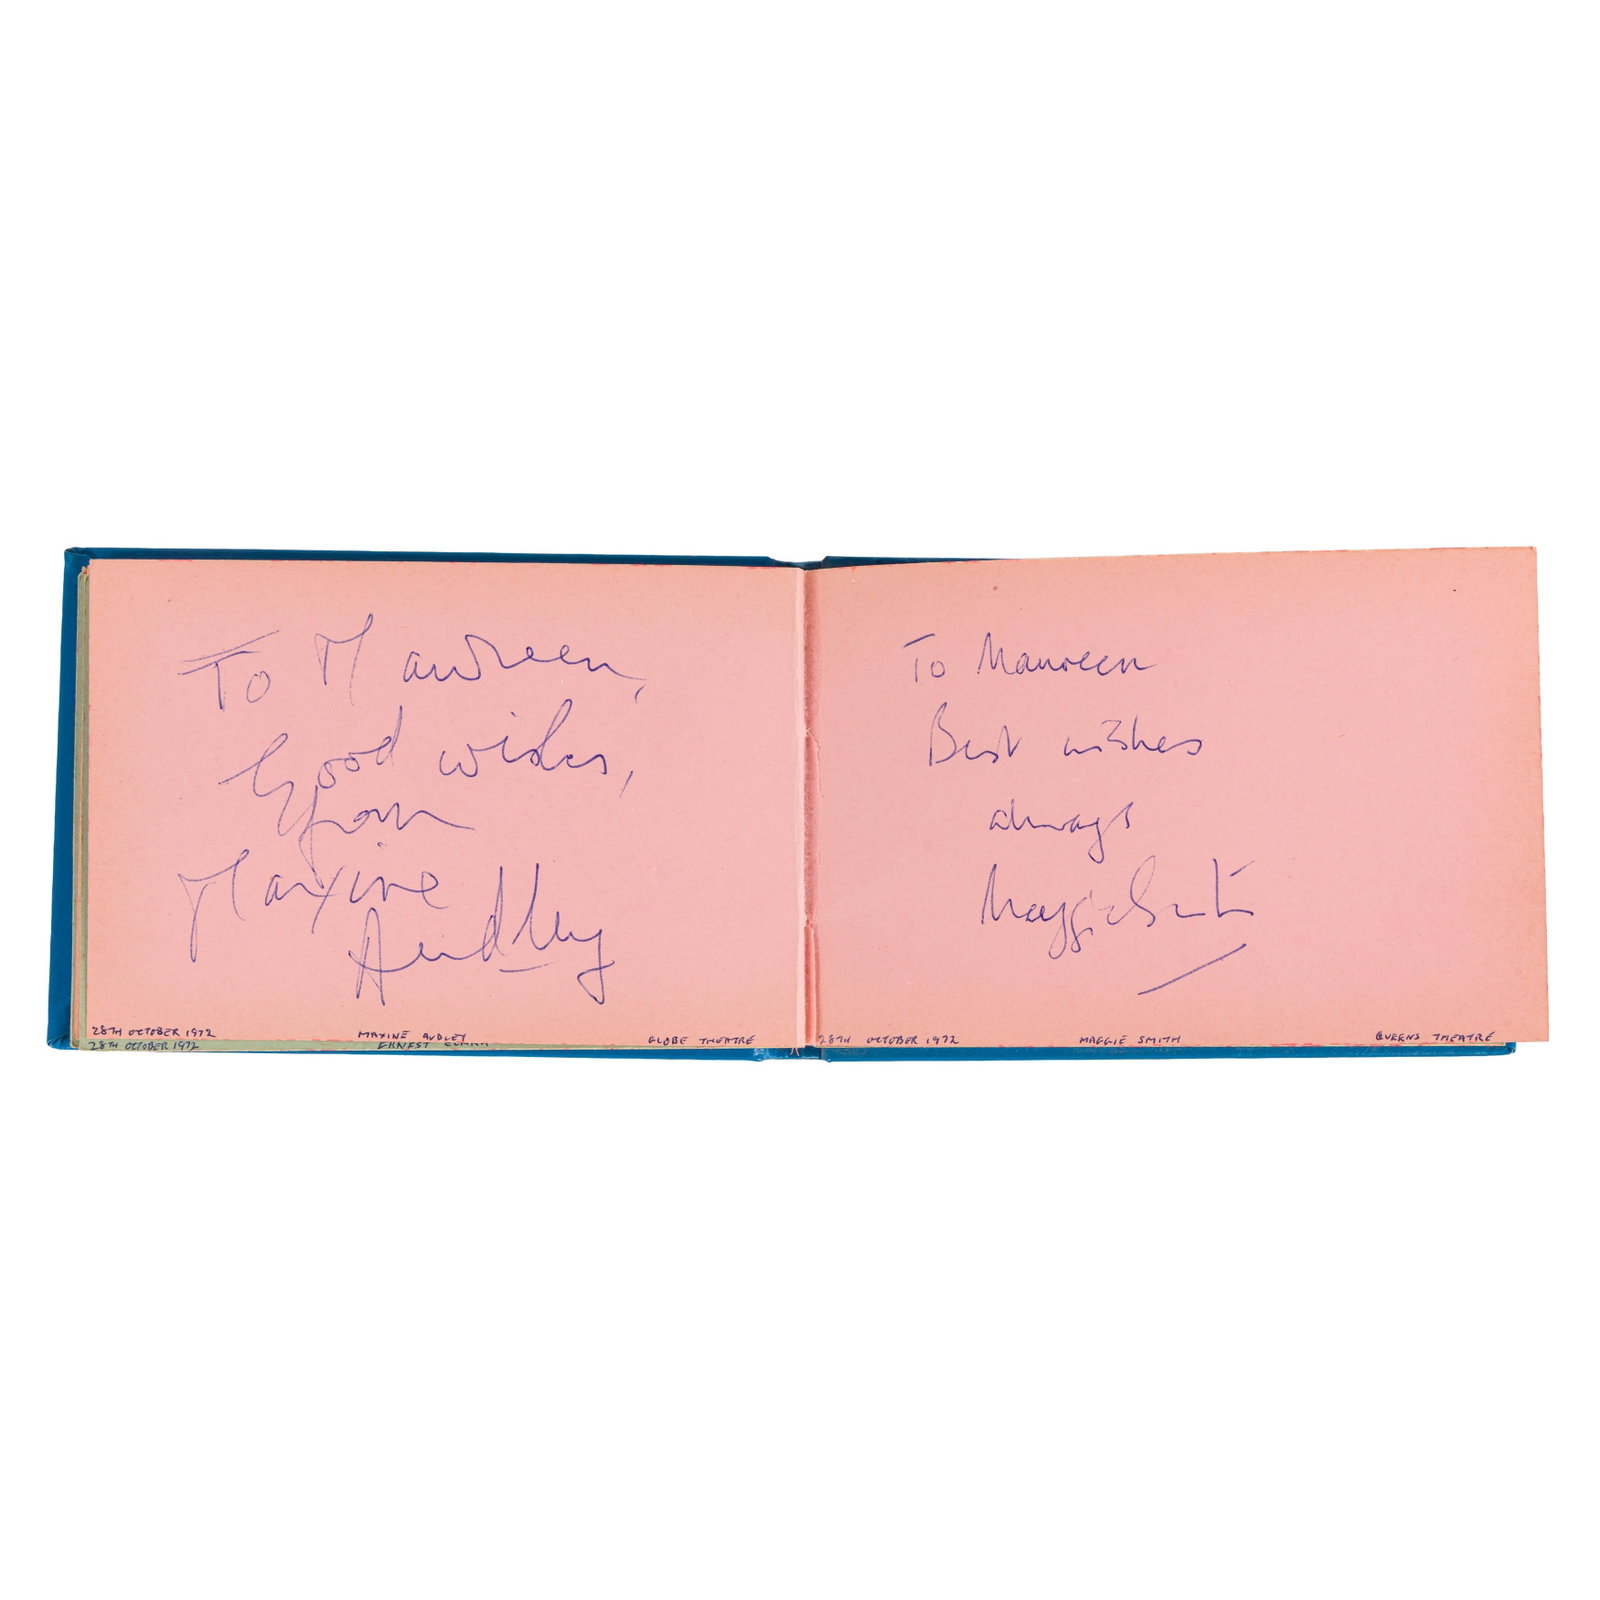 To Maureen,
Good wishes,
from
Maxine
Audley
28TH OCTOBER 1972 MAXINE AUDLEY GLOBE THEATRE
28TH OCTOBER 1972 ERNEST CLARK
To Maureen
Best wishes
always
Maggie Smith
28TH OCTOBER 1972 MAGGIE SMITH QUEENS THEATRE